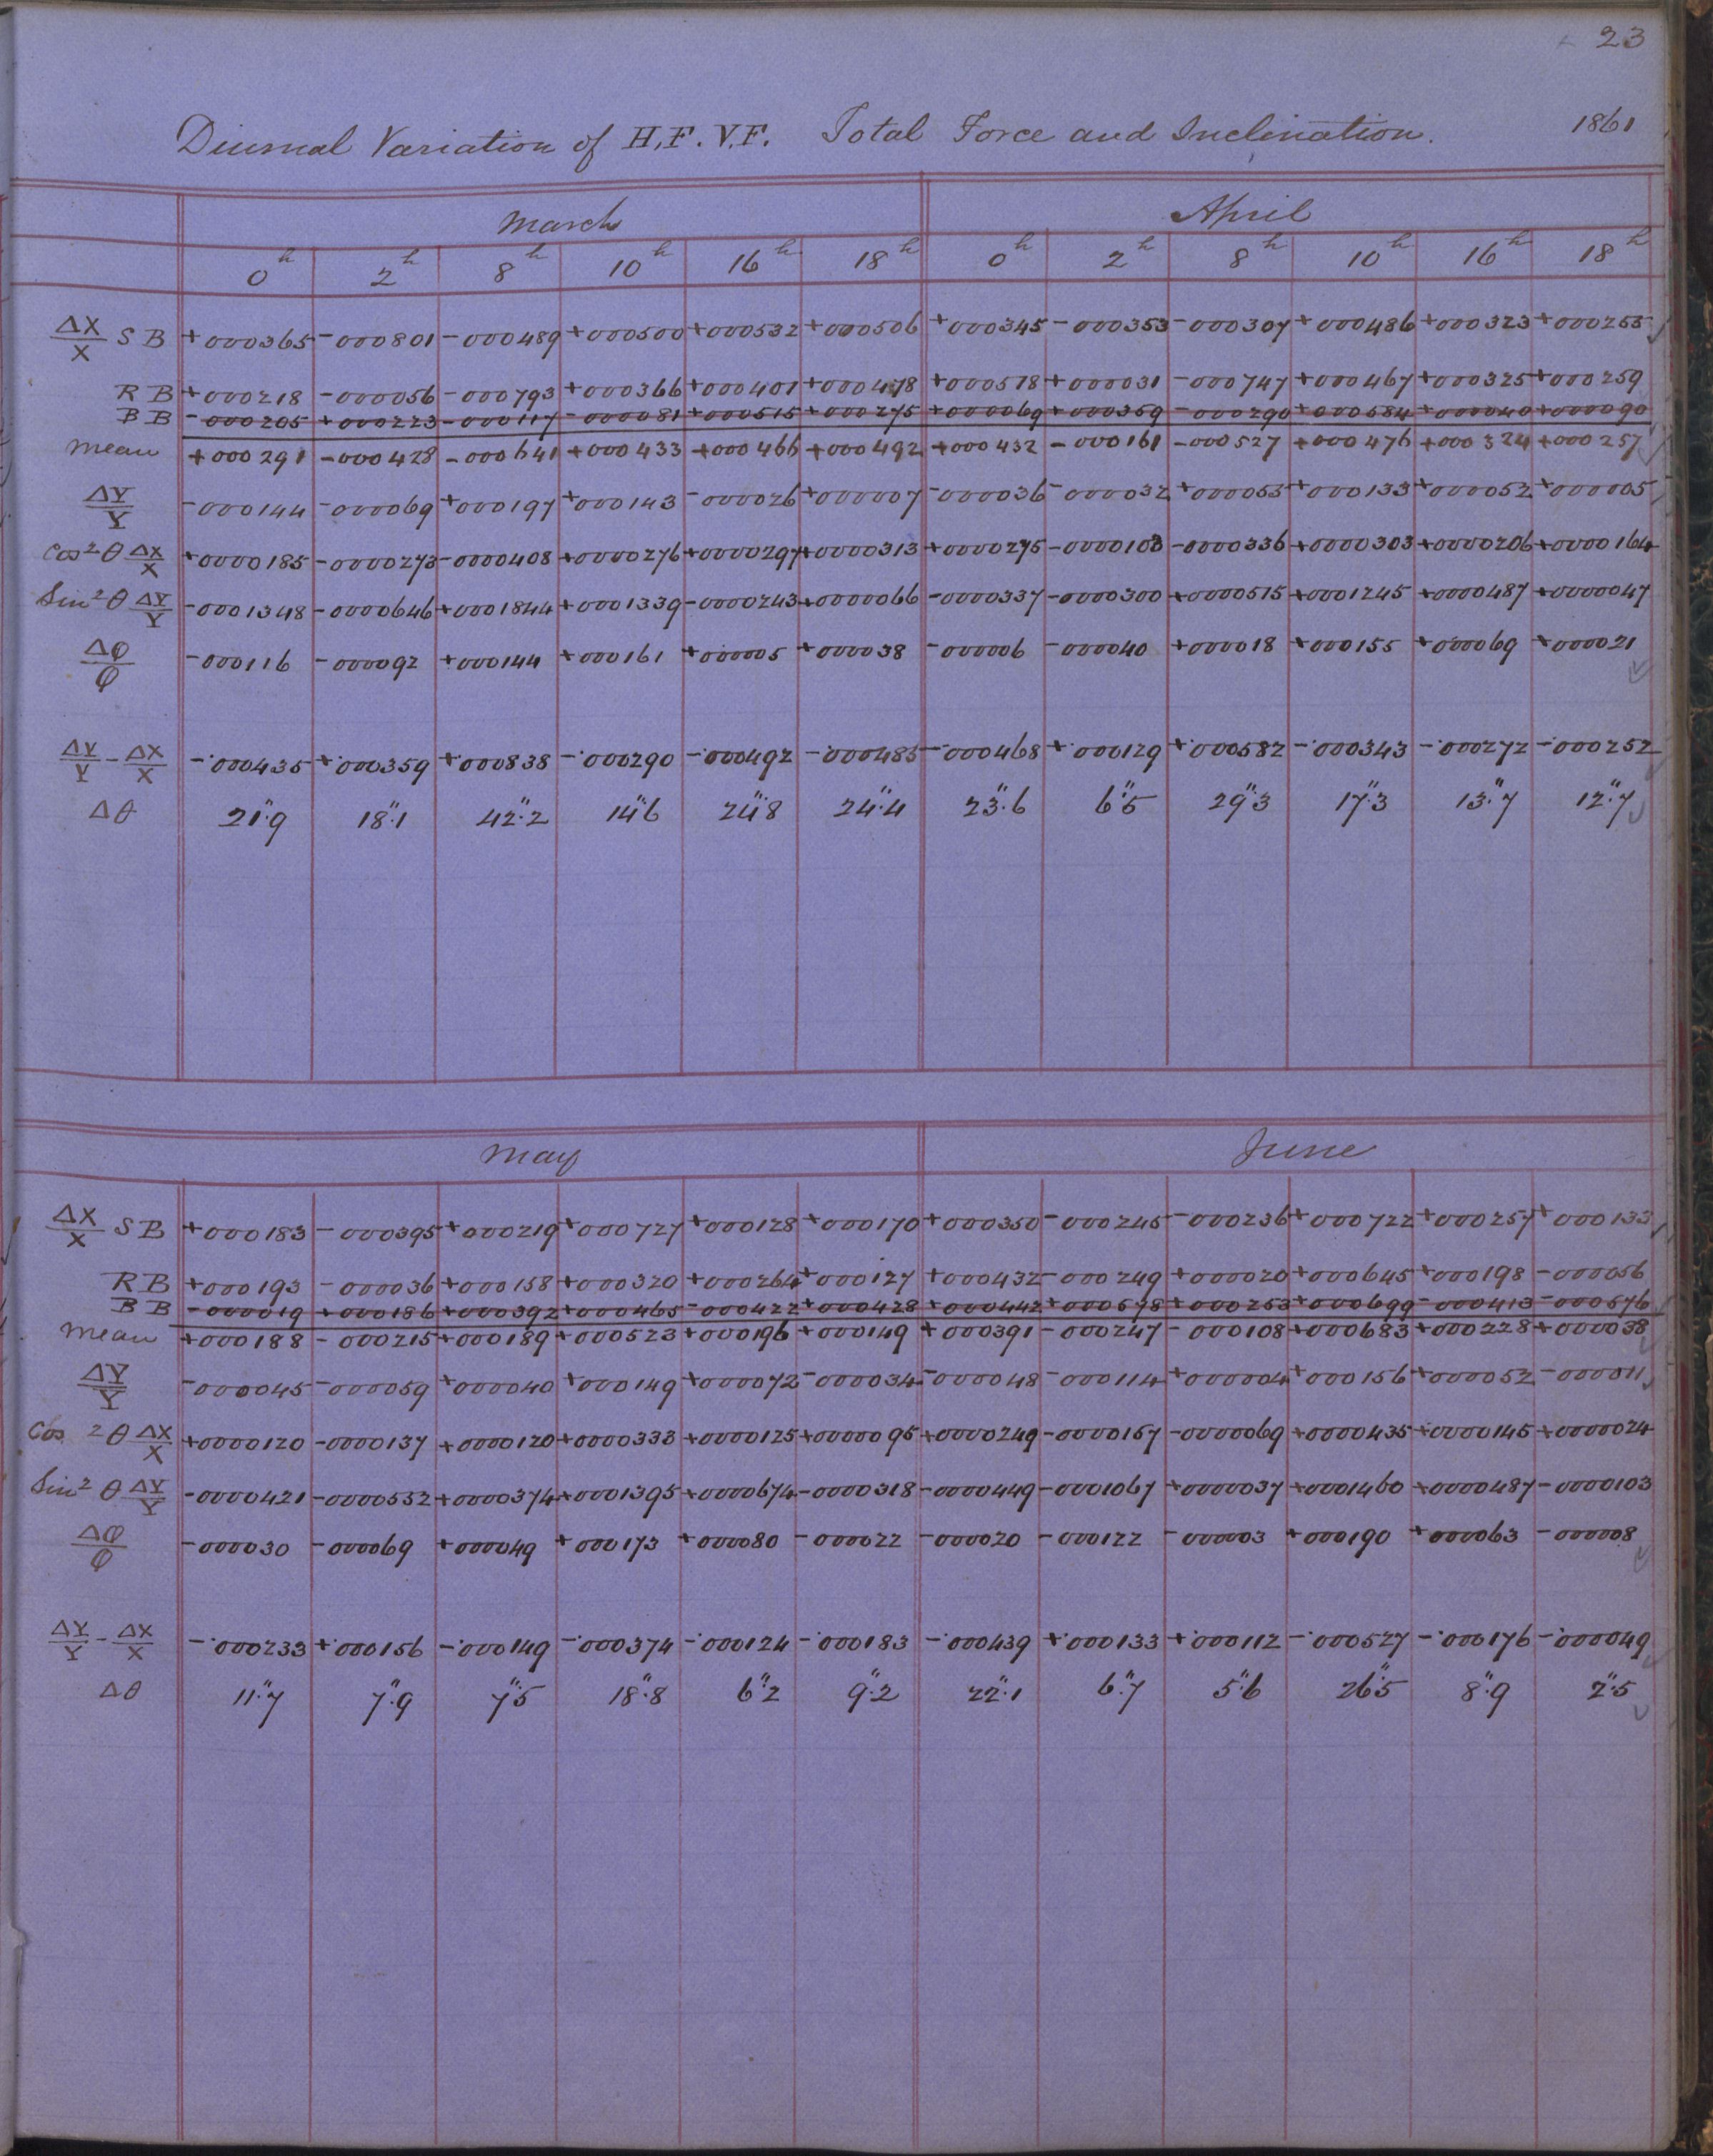 23
Diurnal Variation of H.F. V.F. Total Force and Inclination. 1861
March April
0h 2h 8h 10h 16h 18h 0h 2h 8h 10h 16h 18h
ΔX/X S B +000365 -000801 -000489 +000500 +000532 +000506 +000345 -000353 -000307 +000486 +000323 +000255
R B +000218 -000056 -000793 +000366 +000401 +000478 +000518 +000031 -000747 +000467 +000325 +000259
B B -000205 +000223 -000117 -000081 +000515 +000275 +000069 +000359 -000290 +000584 +000040 +000090
Mean +000291 -000428 -000641 +000433 +000466 +000492 +000432 -000161 -000527 +000476 +000324 +000257
ΔY/Y -000144 -000069 +000197 +000143 -000026 +000007 -000036 -000032 +000055 +000133 +000052 +000005
Cos²θ ΔX/X +0000185 -0000273 -0000408 +0000276 +0000297 +0000313 +0000275 -0000103 -0000336 +0000303 +0000206 +0000164
Sin²θ ΔY/Y -0001348 -0000646 +0001844 +0001339 -0000243 +0000066 -0000337 -0000300 +0000515 +0001245 +0000487 +0000047
Δφ/φ -000116 -000092 +000144 +000161 +000005 +000038 -000006 -000040 +000018 +000155 +000069 +000021
ΔY/Y - ΔX/X -·000435 +·000359 +·000838 -·000290 -·000492 -·000485 -·000468 +·000129 +·000582 -·000343 -·000272 -·000252
Δθ 21″.9 18″.1 42″.2 14″.6 24″.8 24″.4 23″.6 6″.5 29″.3 17″.3 13″.7 12″.7
May June
ΔX/X S B +000183 -000395 +000219 +000727 +000128 +000170 +000350 -000245 -000236 +000722 +000257 +000133
R B +000193 -000036 +000158 +000320 +000264 +000127 +000432 -000249 +000020 +000645 +000198 -000056
B B -000019 +000186 +000392 +000465 -000422 +000428 +000442 +000578 +000253 +000699 -000413 -000576
Mean +000188 -000215 +000189 +000523 +000196 +000149 +000391 -000247 -000108 +000683 +000228 +000038
ΔY/Y -000045 -000059 +000040 +000149 +000072 -000034 -000048 -000114 +000004 +000156 +000052 -000011
Cos ²θ ΔX/X +0000120 -0000137 +0000120 +0000333 +0000125 +0000095 +0000249 -0000157 -0000069 +0000435 +0000145 +0000024
Sin²θ ΔY/Y -0000421 -0000552 +0000374 +0001395 +0000674 -0000318 -0000449 -0001067 +0000037 +0001460 +0000487 -0000103
Δφ/φ -000030 -000069 +000049 +000173 +000080 -000022 -000020 -000122 -000003 +000190 +000063 -000008
ΔY/Y - ΔX/X -·000233 +·000156 -·000149 -·000374 -·000124 -·000183 -·000439 +·000133 +·000112 -·000527 -·000176 -·000049
Δθ 11″.7 7″.9 7″.5 18″.8 6″.2 9″.2 22″.1 6″.7 5″.6 26″.5 8″.9 2″.5